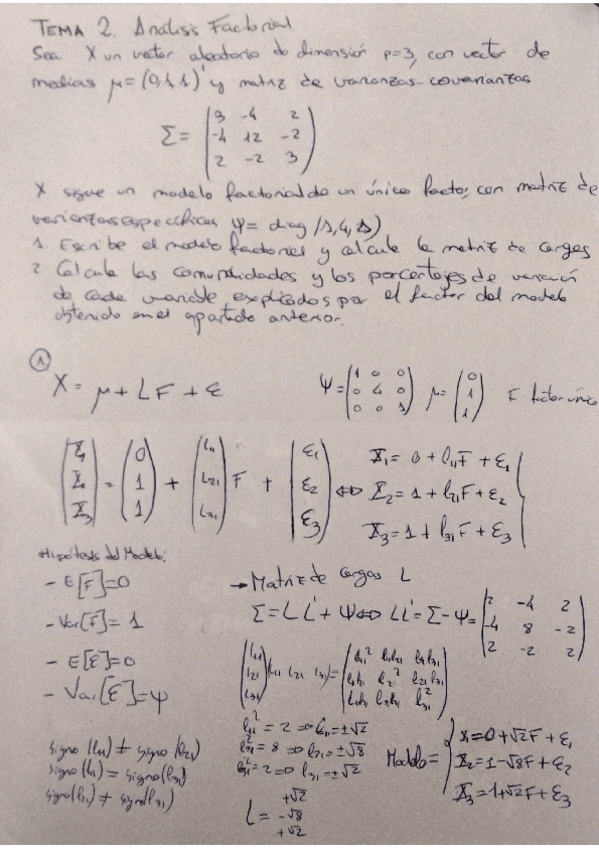 TEMA 2. Análisis Factorial
Sea X un vector aleatorio de dimensión p=3, con vector de
medias μ=(0,1,1)' y matriz de varianzas-covarianzas
Σ = ( 3 -4 2
-4 12 -2
2 -2 3 )
X sigue un modelo factorial de un único factor, con matriz de
varianzas específicas Ψ= diag (1,4,1)
1. Escribe el modelo factorial y calcula la matriz de cargas
2. Calcula las comunalidades y los porcentajes de variación
de cada variable explicados por el factor del modelo
obtenido en el apartado anterior.
① X = μ + LF + ε Ψ = ( 1 0 0
0 4 0
0 0 1 ) μ = ( 0
1
1 ) F factor único
( X₁
X₂
X₃ ) = ( 0
1
1 ) + ( l₁₁
l₂₁
l₃₁ ) F + ( ε₁
ε₂
ε₃ ) ⇔ X₁ = 0 + l₁₁F + ε₁
X₂ = 1 + l₂₁F + ε₂
X₃ = 1 + l₃₁F + ε₃
Hipótesis del Modelo:
- E[F]=0
- Var[F]= 1
- E[ε]=0
- Var[ε]= Ψ
signo (l₁₁) ≠ signo (l₂₁)
signo (l₁₁) = signo (l₃₁)
signo (l₂₁) ≠ signo (l₃₁)
→ Matriz de cargas L
Σ = LL' + Ψ ⇔ LL' = Σ-Ψ = ( 2 -4 2
-4 8 -2
2 -2 2 )
( l₁₁
l₂₁
l₃₁ ) (l₁₁ l₂₁ l₃₁) = ( l₁₁² l₁₁l₂₁ l₁₁l₃₁
l₁₁l₂₁ l₂₁² l₂₁l₃₁
l₁₁l₃₁ l₂₁l₃₁ l₃₁² )
l₁₁² = 2 ⇒ l₁₁ = ±√2
l₂₁² = 8 ⇒ l₂₁ = ±√8
l₃₁² = 2 ⇒ l₃₁ = ±√2
L = +√2
-√8
+√2
Modelo = { X₁=0+√2F+ε₁
X₂=1-√8F+ε₂
X₃=1+√2F+ε₃